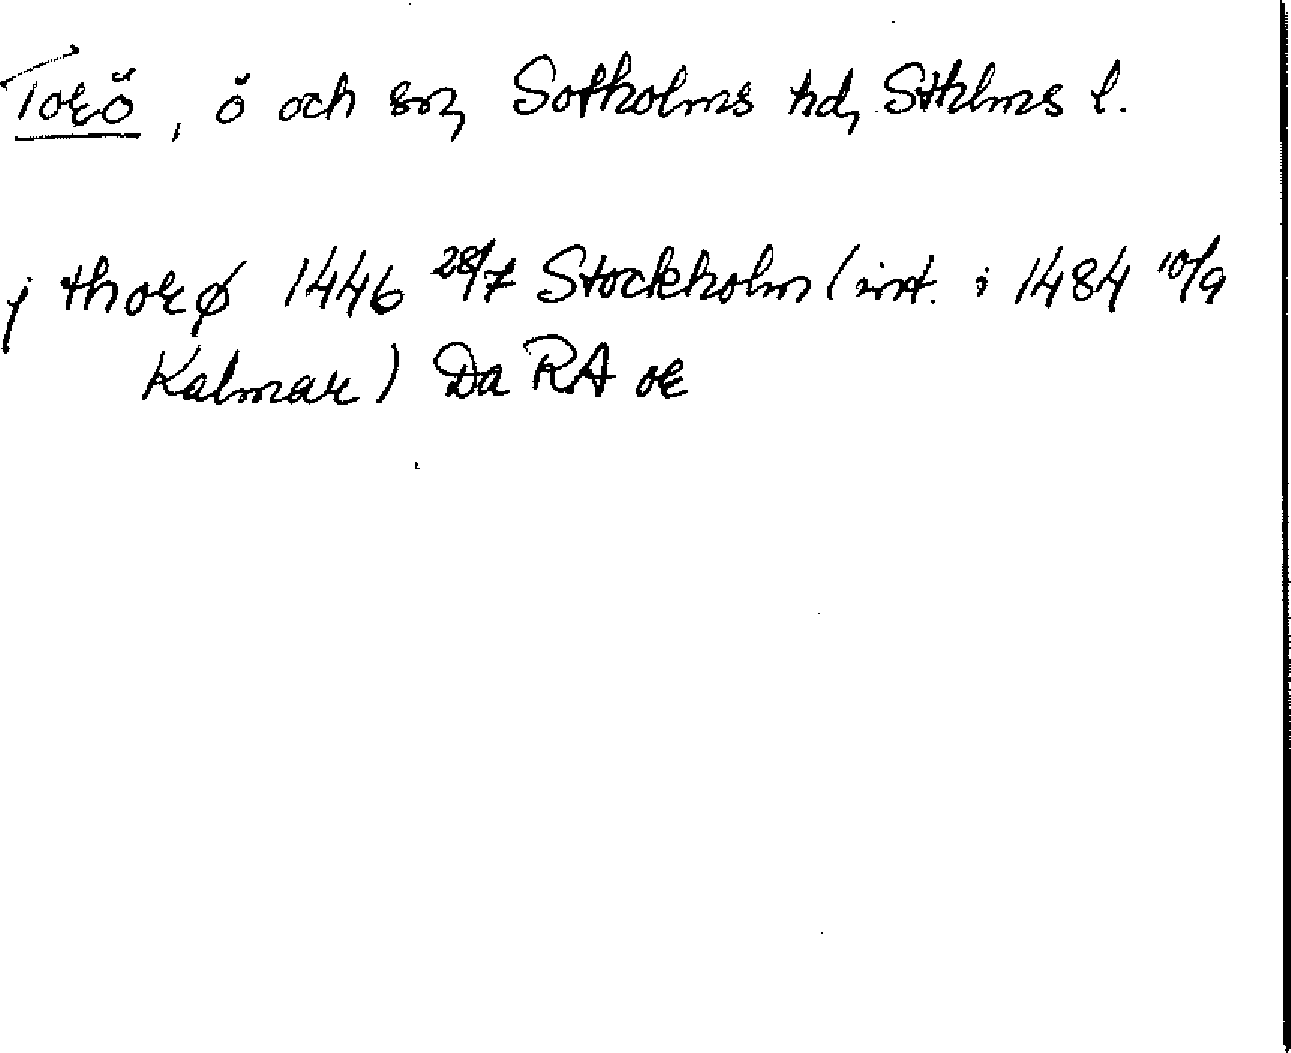 Torö, ö och sn, Sotholms hd, Sthlms l.
j thorø 1446 28/7 Stockholm (int. i 1484 10/9
Kalmar) Da RA or